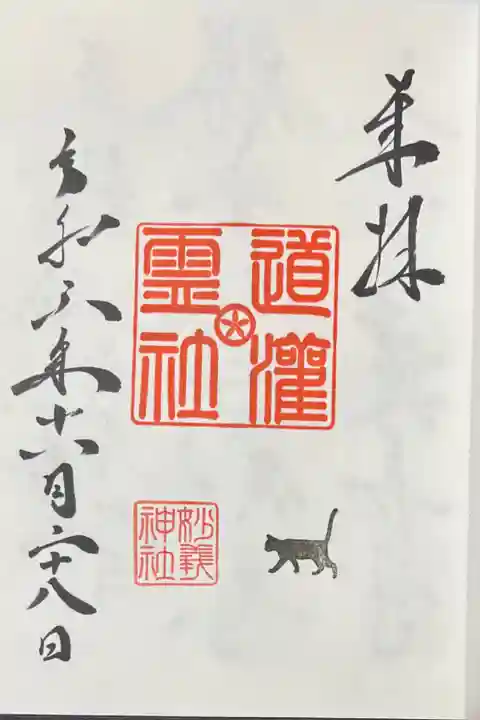 奉拝
道灌
霊社
妙義
神社
令和六年十月二十八日